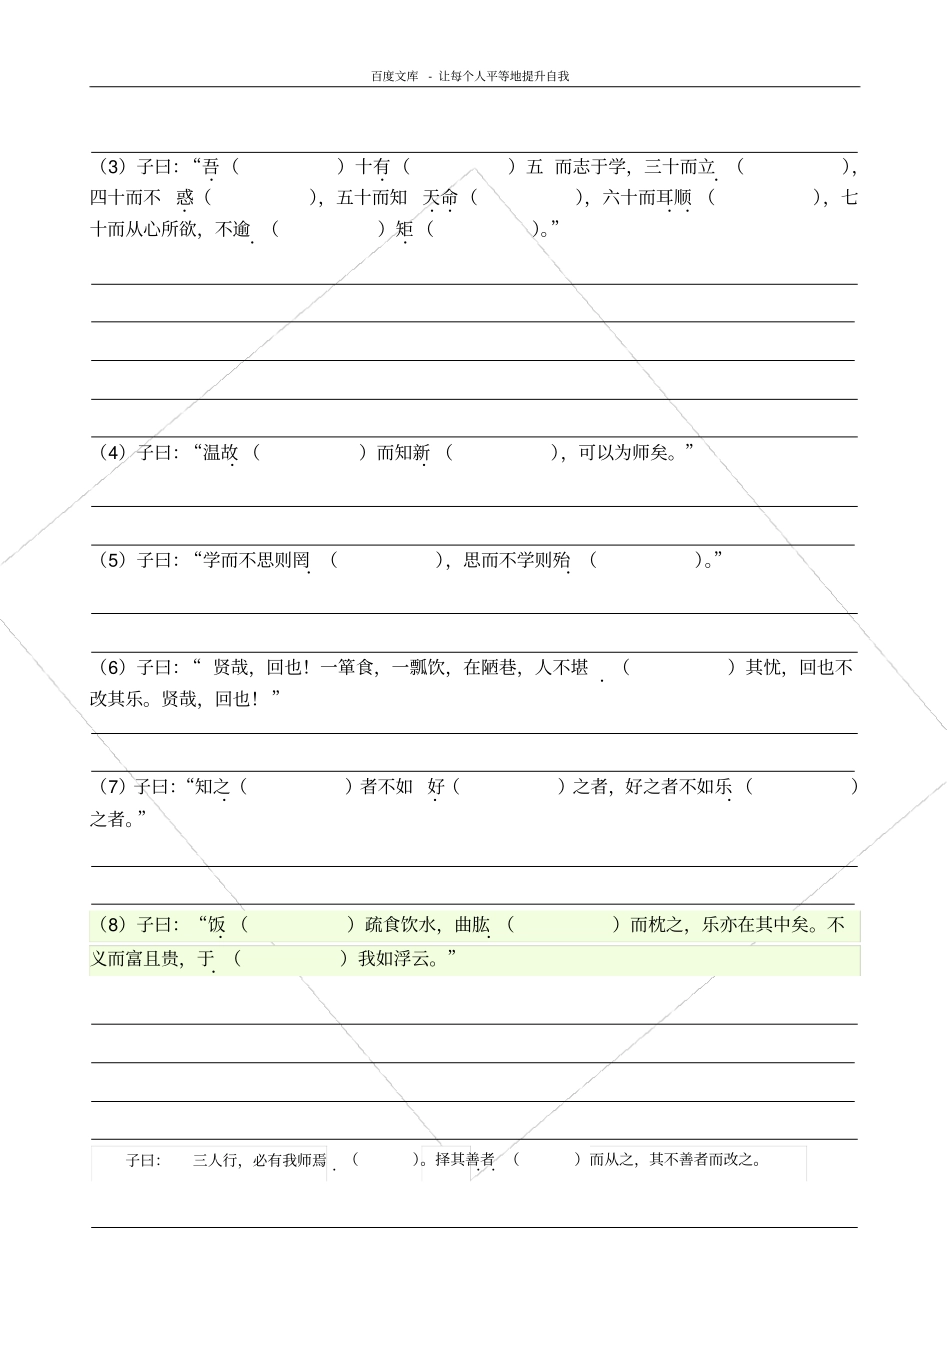 百度文库 - 让每个人平等地提升自我
（3）子曰：“吾（ ）十有（ ）五 而志于学，三十而立（ ），
四十而不 惑（ ），五十而知 天命（ ），六十而耳顺（ ），七
十而从心所欲，不逾（ ）矩（ ）。”
（4）子曰：“温故（ ）而知新（ ），可以为师矣。”
（5）子曰：“学而不思则罔（ ），思而不学则殆（ ）。”
（6）子曰：“ 贤哉，回也！一箪食，一瓢饮，在陋巷，人不堪（ ）其忧，回也不
改其乐。贤哉，回也！”
（7）子曰：“知之（ ）者不如 好（ ）之者，好之者不如乐（ ）
之者。”
（8）子曰：“饭（ ）疏食饮水，曲肱（ ）而枕之，乐亦在其中矣。不
义而富且贵，于（ ）我如浮云。”
子曰： 三人行，必有我师焉（ ）。择其善者（ ）而从之，其不善者而改之。